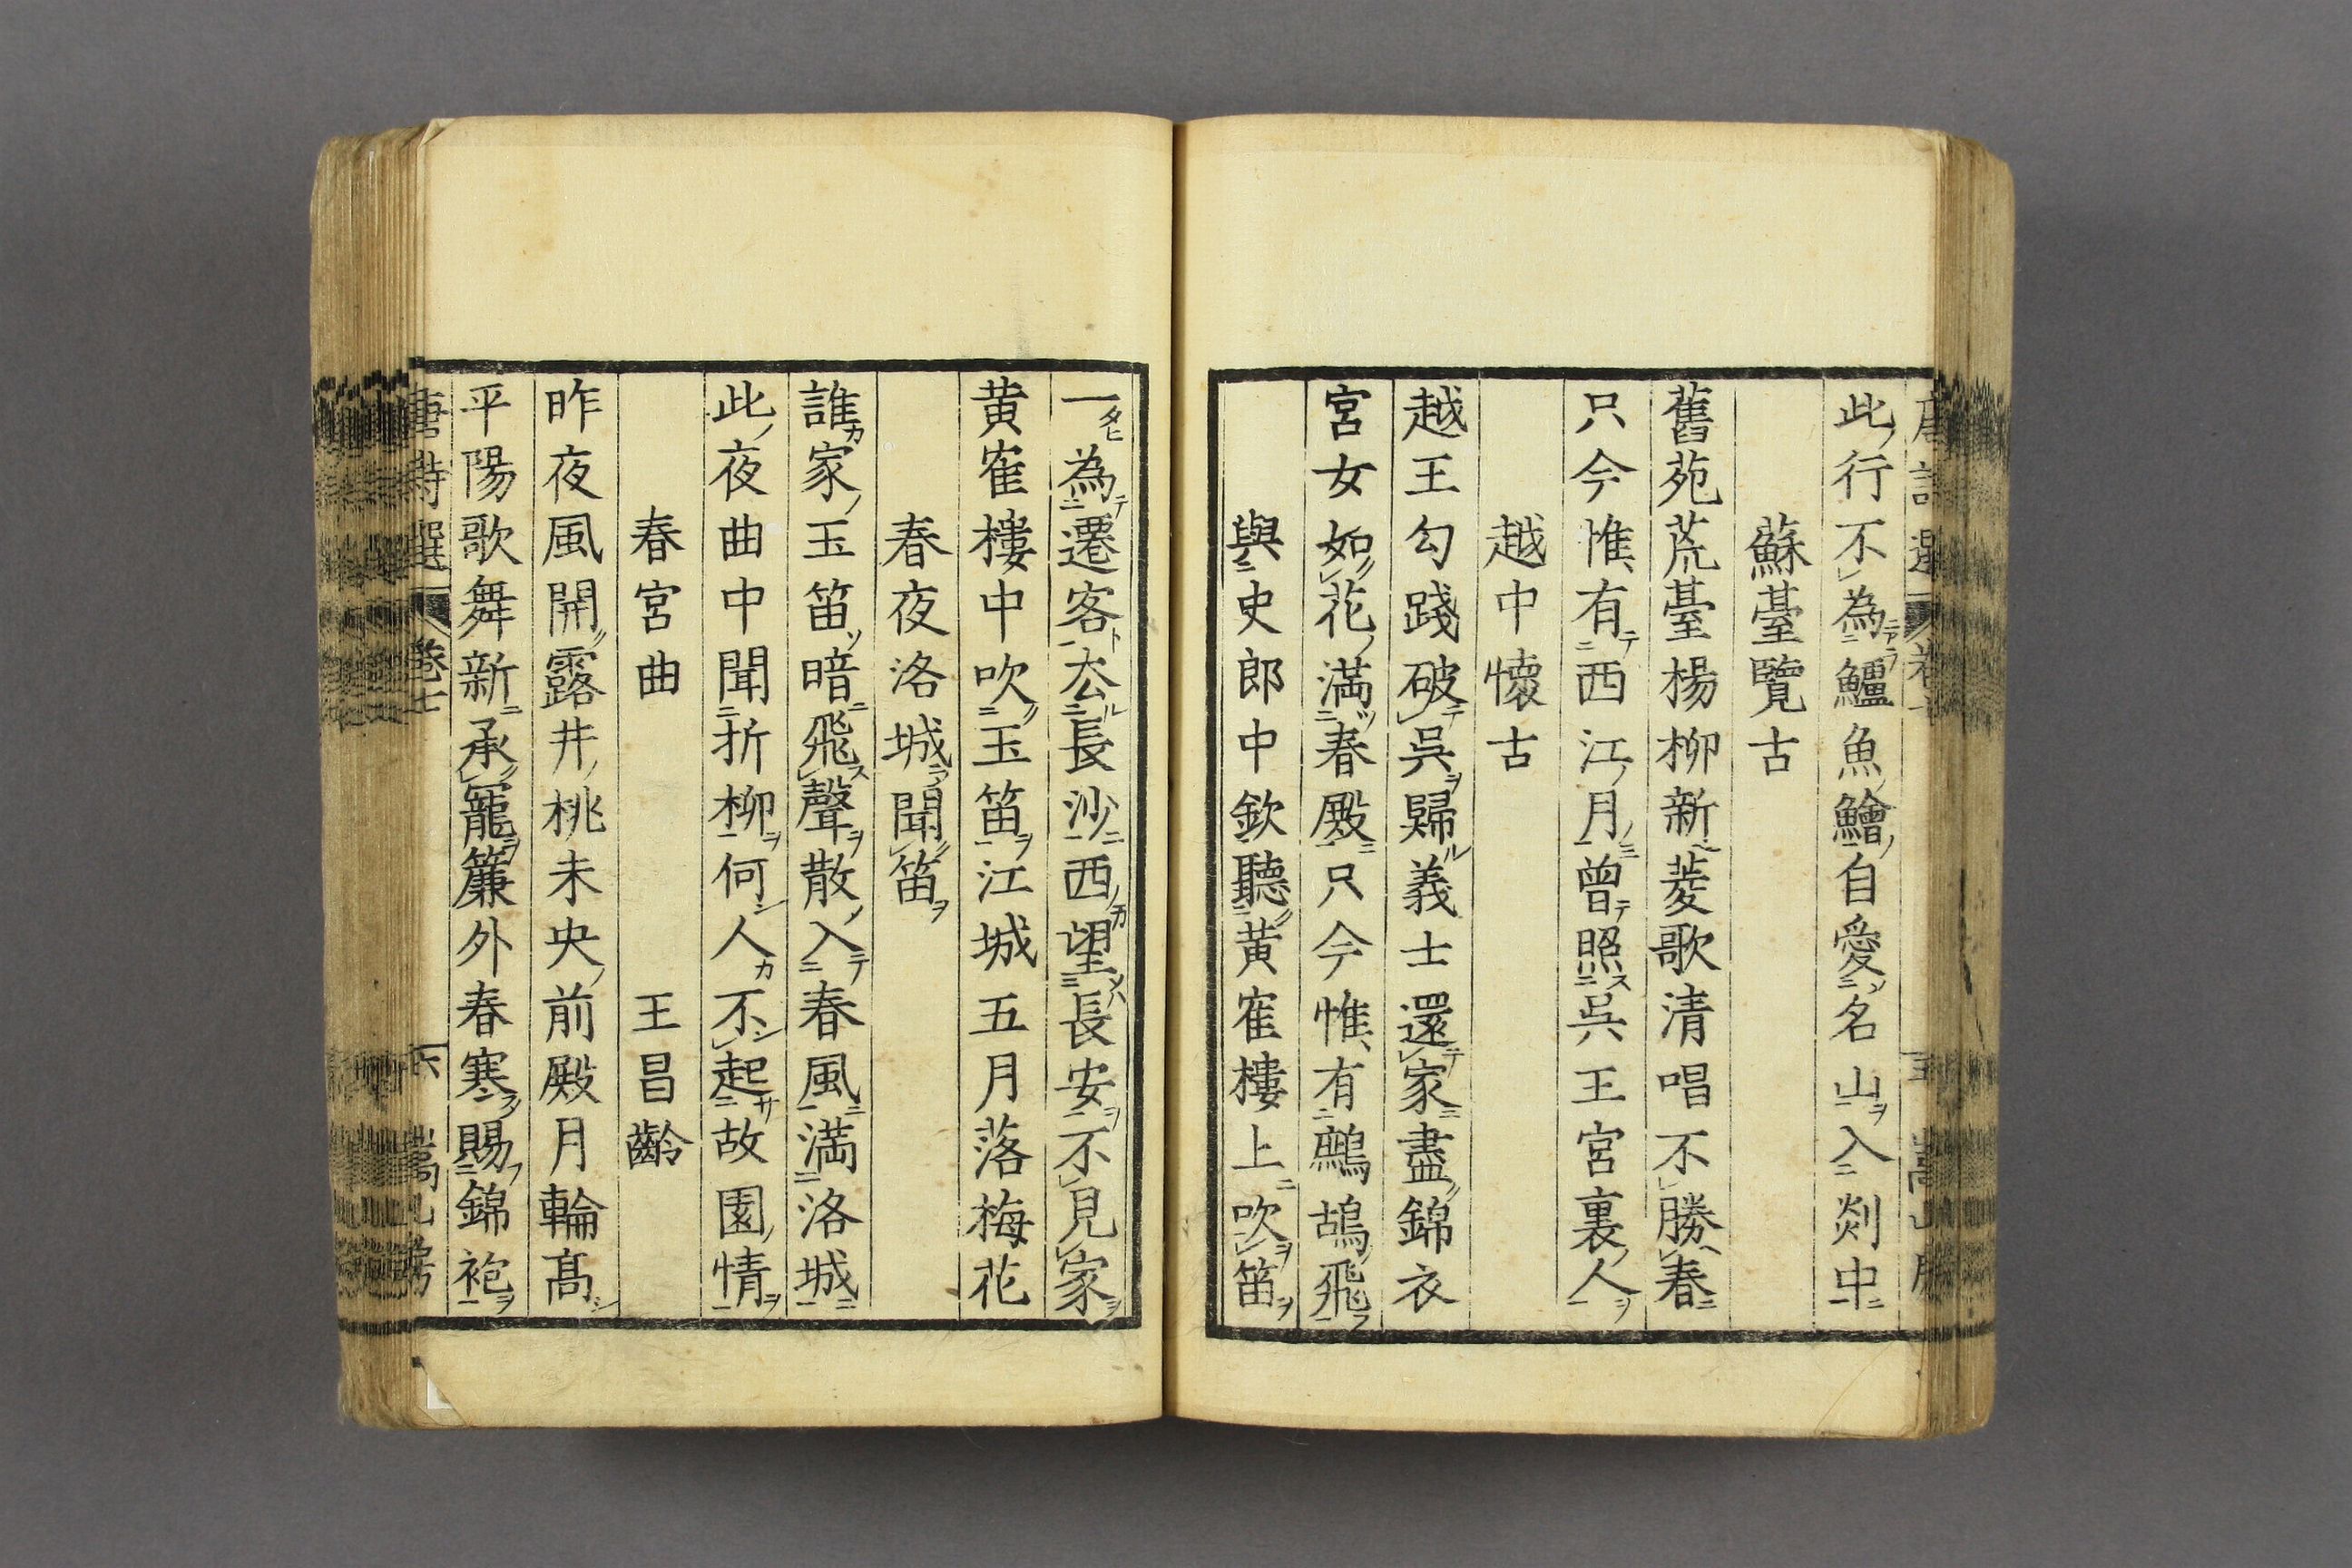 此行不為鱸魚鱠自愛名山入剡中
蘇臺覽古
舊苑荒臺楊柳新菱歌清唱不勝春
只今惟有西江月曾照吳王宮裏人
越中懷古
越王勾踐破吳歸義士還家盡錦衣
宮女如花滿春殿只今惟有鷓鴣飛
與史郎中欽聽黃隺樓上吹笛
一為遷客去長沙西望長安不見家
黃隺樓中吹玉笛江城五月落梅花
春夜洛城聞笛
誰家玉笛暗飛聲散入春風滿洛城
此夜曲中聞折柳何人不起故園情
春宮曲 王昌齡
昨夜風開露井桃未央前殿月輪髙
平陽歌舞新承寵簾外春寒賜錦袍
唐詩選 卷七 六 嵩山房